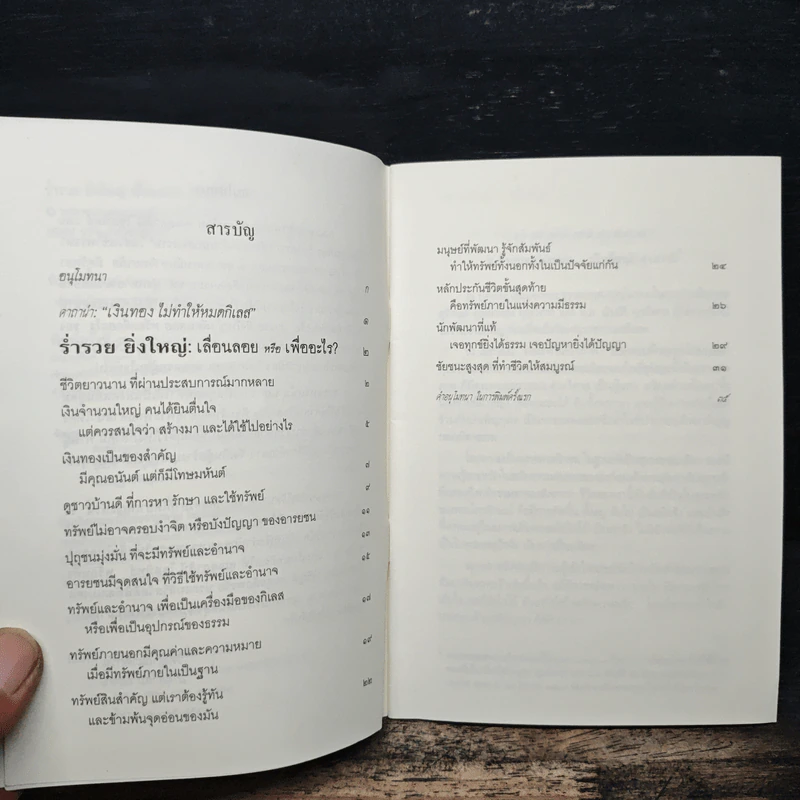 สารบัญ
อนุโมทนา ก
คาถานำ: “เงินทอง ไม่ทำให้หมดกิเลส” ๑
ร่ำรวย ยิ่งใหญ่: เลื่อนลอย หรือ เพื่ออะไร? ๒
ชีวิตยาวนาน ที่ผ่านประสบการณ์มากหลาย ๒
เงินจำนวนใหญ่ คนได้ยินตื่นใจ
แต่ควรสนใจว่า สร้างมา และได้ใช้ไปอย่างไร ๕
เงินทองเป็นของสำคัญ
มีคุณอนันต์ แต่ก็มีโทษมหันต์ ๗
ดูชาวบ้านดี ที่การหา รักษา และใช้ทรัพย์ ๙
ทรัพย์ไม่อาจครอบงำจิต หรือบังปัญญา ของอารยชน ๑๑
ปุถุชนมุ่งมั่น ที่จะมีทรัพย์และอำนาจ ๑๓
อารยชนมีจุดสนใจ ที่วิธีใช้ทรัพย์และอำนาจ ๑๕
ทรัพย์และอำนาจ เพื่อเป็นเครื่องมือของกิเลส
หรือเพื่อเป็นอุปกรณ์ของธรรม ๑๗
ทรัพย์ภายนอกมีคุณค่าและความหมาย
เมื่อมีทรัพย์ภายในเป็นฐาน ๑๙
ทรัพย์สินสำคัญ แต่เราต้องรู้ทัน
และข้ามพ้นจุดอ่อนของมัน ๒๒
มนุษย์ที่พัฒนา รู้จักสัมพันธ์
ทำให้ทรัพย์ทั้งนอกทั้งในเป็นปัจจัยแก่กัน ๒๔
หลักประกันชีวิตขั้นสุดท้าย
คือทรัพย์ภายในแห่งความมีธรรม ๒๖
นักพัฒนาที่แท้
เจอทุกข์ยิ่งได้ธรรม เจอปัญหายิ่งได้ปัญญา ๒๙
ชัยชนะสูงสุด ที่ทำชีวิตให้สมบูรณ์ ๓๑
คำอนุโมทนา ในการพิมพ์ครั้งแรก ๓๕